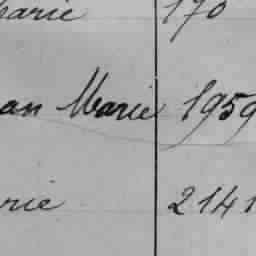 Marie 170
an Marie 1959
rie 2141